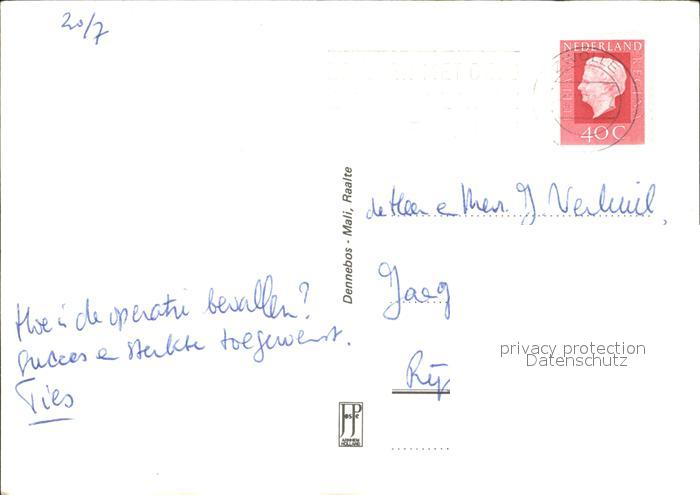 20/7
NEDERLAND
40C
Dennebos - Mali, Raalte
de Heer en Mevr. J. Verheul,
Jaag
Hoe is de operatie bevallen?
Succes en sterkte toegewenst.
Ties
Rij
privacy protection
Datenschutz
JosPe
ARNHEM
HOLLAND